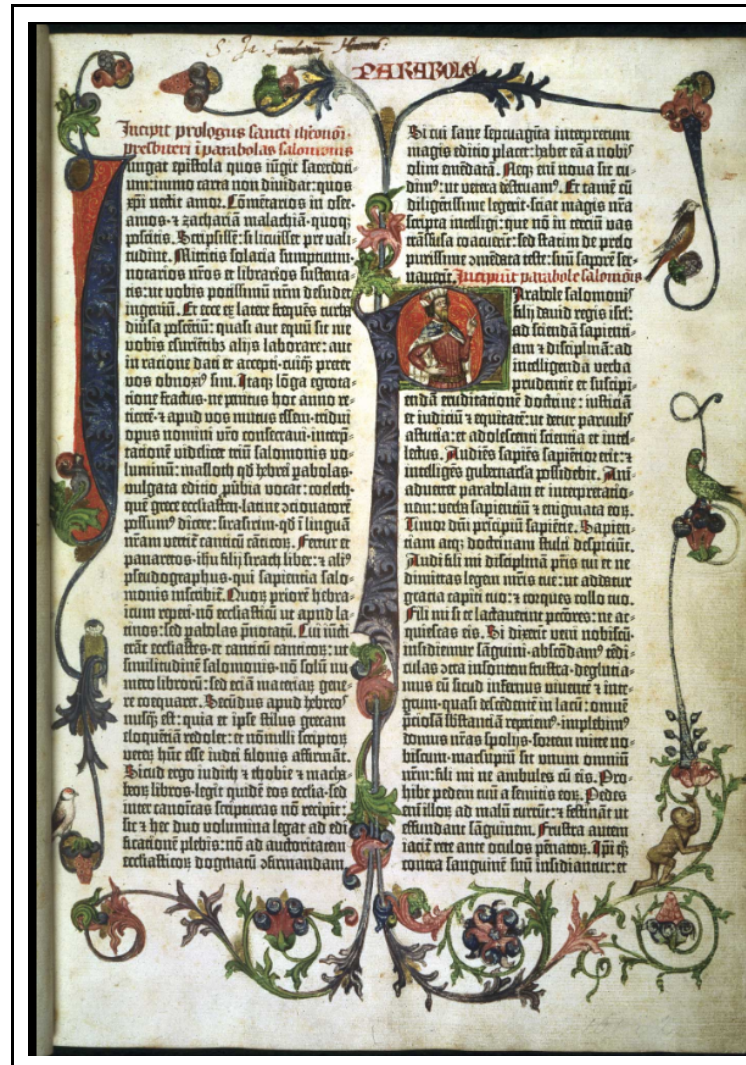 PARABOLE
Incipit prologus sancti iheronimi
presbiteri i parabolas salomonis
Iungat epistola quos iūgit sacerdoti-
um: immo carta non diuidat: quos
xp̄i nectit amor. Cōmētarios in osee.
amos. ⁊ zachariā malachiā. quoqꝫ
poscitis. Scripsissē: si licuisset pre vali-
tudine. Mittitis solacia sumptuum.
notarios nr̄os et librarios sustenta-
tis: ut vobis potissimū nr̄m desudet
ingeniū. Et ecce ex latere frequēs turba
diūsa poscētiū: quasi aut equū sit me
vobis esuriētibꝫ alijs laborare: aut
in racione dati et accepti. cuiqꝫ preter
vos obnoxiꝰ sim. Itaqꝫ lōga egrota-
tione fractus. ne penitus hoc anno re-
ticerē. ⁊ apud vos mutus essem. tridui
opus nomini vr̄o consecraui. interp̄-
tationē videlicet triū salomonis vo-
luminū: masloth qd̄ hebrei pabolas.
vulgata editio ꝓūbia vocat: coeleth.
quē grece ecclesiasten. latine ꝯcionatorē
possumꝰ dicere: sirasirim. qd̄ i linguā
nr̄am vertit̄ canticū cāticoꝝ. Fertur et
panaretos. ihu filij sirach liber: ⁊ aliꝰ
pseudographus. qui sapientia salo-
monis inscribit̄. Quoꝝ priorē hebra-
icum repperi. nō ecclesiasticū ut apud la-
tinos: sed pabolas p̄notatū. Cui iūcti
erāt ecclesiastes. et canticū canticoꝝ: ut
similitudinē salomonis. nō solū nu-
mero librorū: sed etiā materiaꝝ gene-
re coequaret. Secūdus apud hebreos
nusqꝫ est: quia et ipse stilus grecam
eloquētiā redolet: et nōnulli scriptoꝝ
veteꝝ hūc esse iudei filonis affirmāt.
Sicud ergo iudith ⁊ thobie ⁊ macha-
beoꝝ libros. legit quidē eos ecclesia. sed
inter canoicas scripturas nō recipit:
sic ⁊ hec duo volumina legat ad edi-
ficationē plebis: nō ad auctoritatem
ecclesiasticoꝝ dogmatū ꝯfirmandam.
Si cui sane septuaginta interpretum
magis editio placet: habet eā a nobis
olim emēdatā. Neqꝫ enī noua sic cu-
dimꝰ: ut vetera destruamꝰ. Et tamē cū
diligētissime legerit. sciat magis nr̄a
scripta intelligi: que nō in terciū vas
trāsfusa coacuerīt: sed statim de prelo
purissime ꝯmēdata teste: suū saporē ser-
uauerīt. Incipiūt parabole salomōis
Parabole salomonis
filij dauid regis isrl̄:
ad sciendā sapienti-
am ⁊ disciplinā: ad
intelligendā verba
prudentie et suscipi-
endā eruditationē doctrine: iusticiā
et iudiciū ⁊ equitatē: ut detur paruulis
astutia: et adolescenti scientia et intel-
lectus. Audiēs sapiēs sapiētior erit: ⁊
intelligēs gubernacla possidebit. Ani-
aduertet parabolam et interpretatio-
nem: verba sapientiū ⁊ enigmata eoꝝ.
Timor dn̄i principiū sapiētie. Sapien-
tiam atqꝫ doctrinam stulti despiciūt.
Audi fili mi disciplinā pr̄is tui et ne
dimittas legem mr̄is tue: ut addatur
gracia capiti tuo: ⁊ torques collo tuo.
Fili mi si te lactauerint peccatores: ne ac-
quiescas eis. Si dixerīt veni nobiscū.
insidiemur sāguini. abscōdamꝰ tēdi-
culas ꝯtra insontem frustra. deglutia-
mus eū sicud infernus viuentē ⁊ inte-
grum. quasi descēdentē in lacū: omnē
p̄ciosā sb̄stanciā reperiemꝰ. implebimꝰ
domus nr̄as spolijs. sortem mitte no-
biscum. marsupiū sit vnum omniū
nr̄m: fili mi ne ambules cū eis. Pro-
hibe pedem tuū a semitis eoꝝ. Pedes
enī illoꝝ ad malū currūt: ⁊ festināt ut
effundant sāguinem. Frustra autem
iacit̄ rete ante oculos pēnatoꝝ. Ipi qꝫ
contra sanguinē suū insidiantur: et